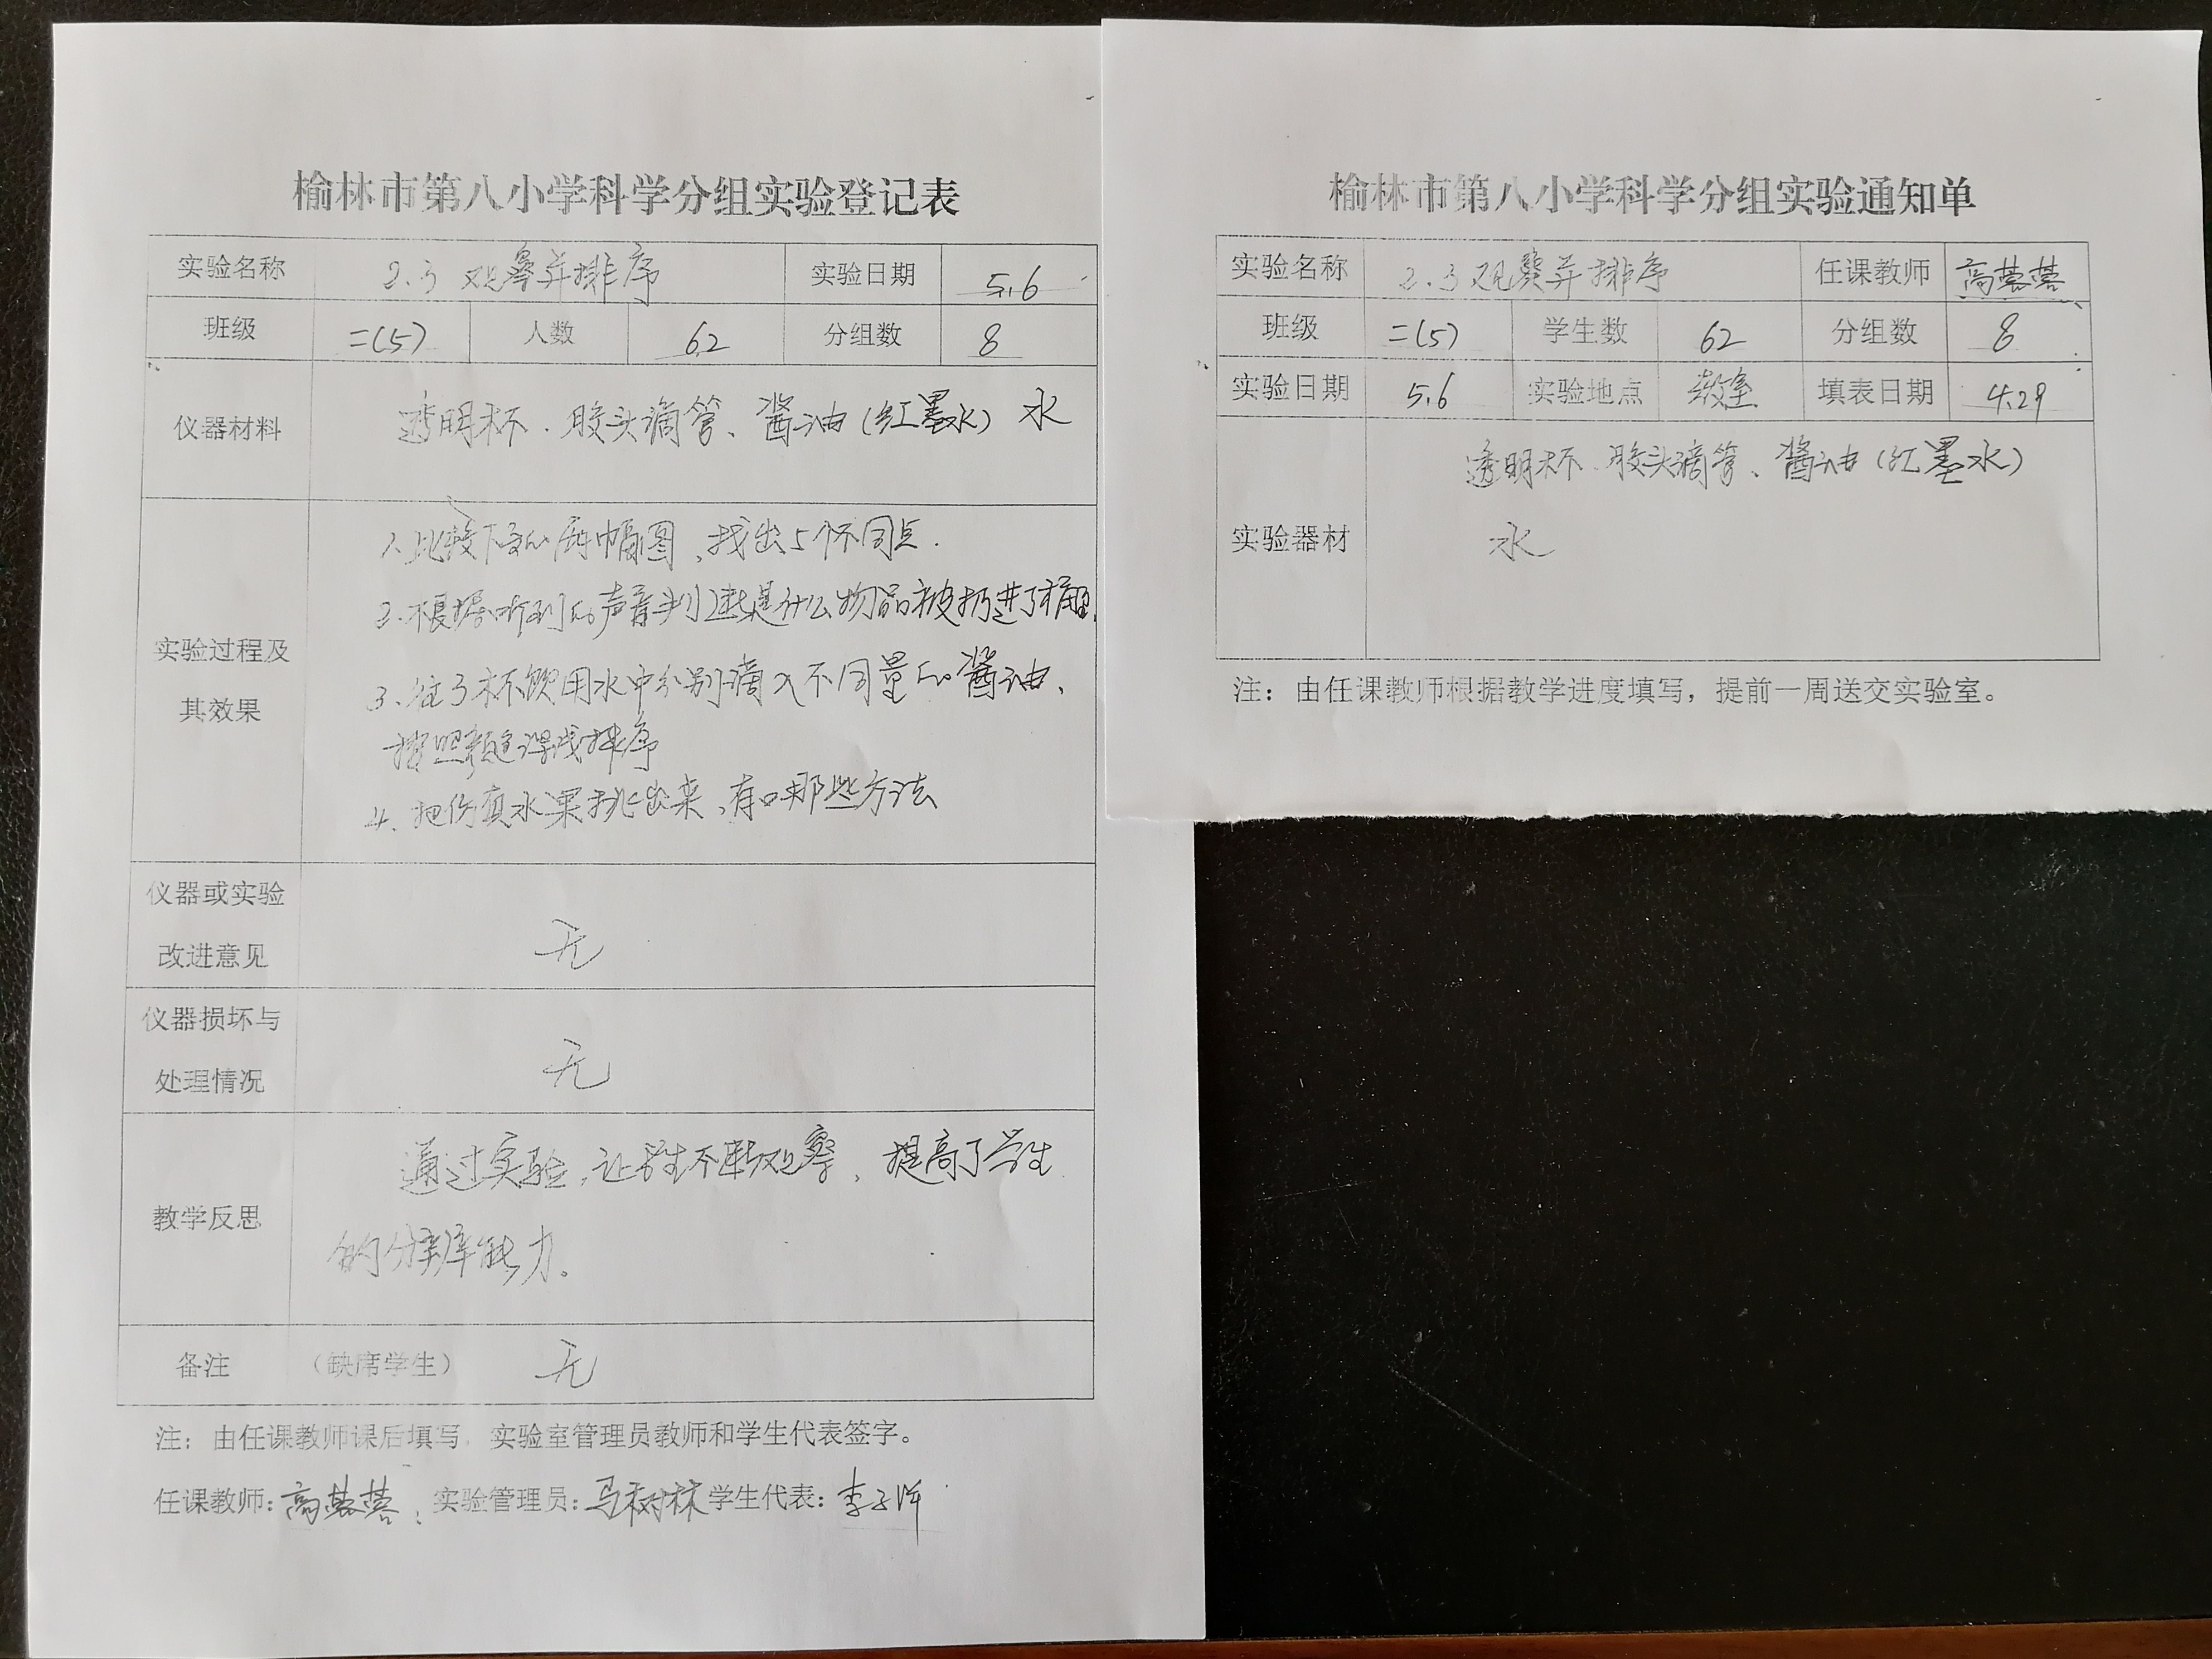 榆林市第八小学科学分组实验登记表
实验名称 2.3 观察并排序 实验日期 5.6
班级 二(5) 人数 62 分组数 8
仪器材料 透明杯、胶头滴管、酱油(红墨水) 水
实验过程及
其效果
1、比较下面的两幅图,找出5个不同点.
2、根据听到的声音判断是什么物品被扔进了桶里.
3、往3杯饮用水中分别滴入不同量的酱油、
按照颜色深浅排序
4、把仿真水果挑出来,有哪些方法
仪器或实验
改进意见
无
仪器损坏与
处理情况
无
教学反思
通过实验,让学生不断观察,提高了学生
的分辨能力。
备注 (缺席学生) 无
注:由任课教师课后填写,实验室管理员教师和学生代表签字。
任课教师:高蓉蓉 实验管理员:马树林 学生代表:李子洋
榆林市第八小学科学分组实验通知单
实验名称 2.3 观察并排序 任课教师 高蓉蓉
班级 二(5) 学生数 62 分组数 8
实验日期 5.6 实验地点 教室 填表日期 4.29
实验器材
透明杯、胶头滴管、酱油(红墨水)
水
注:由任课教师根据教学进度填写,提前一周送交实验室。